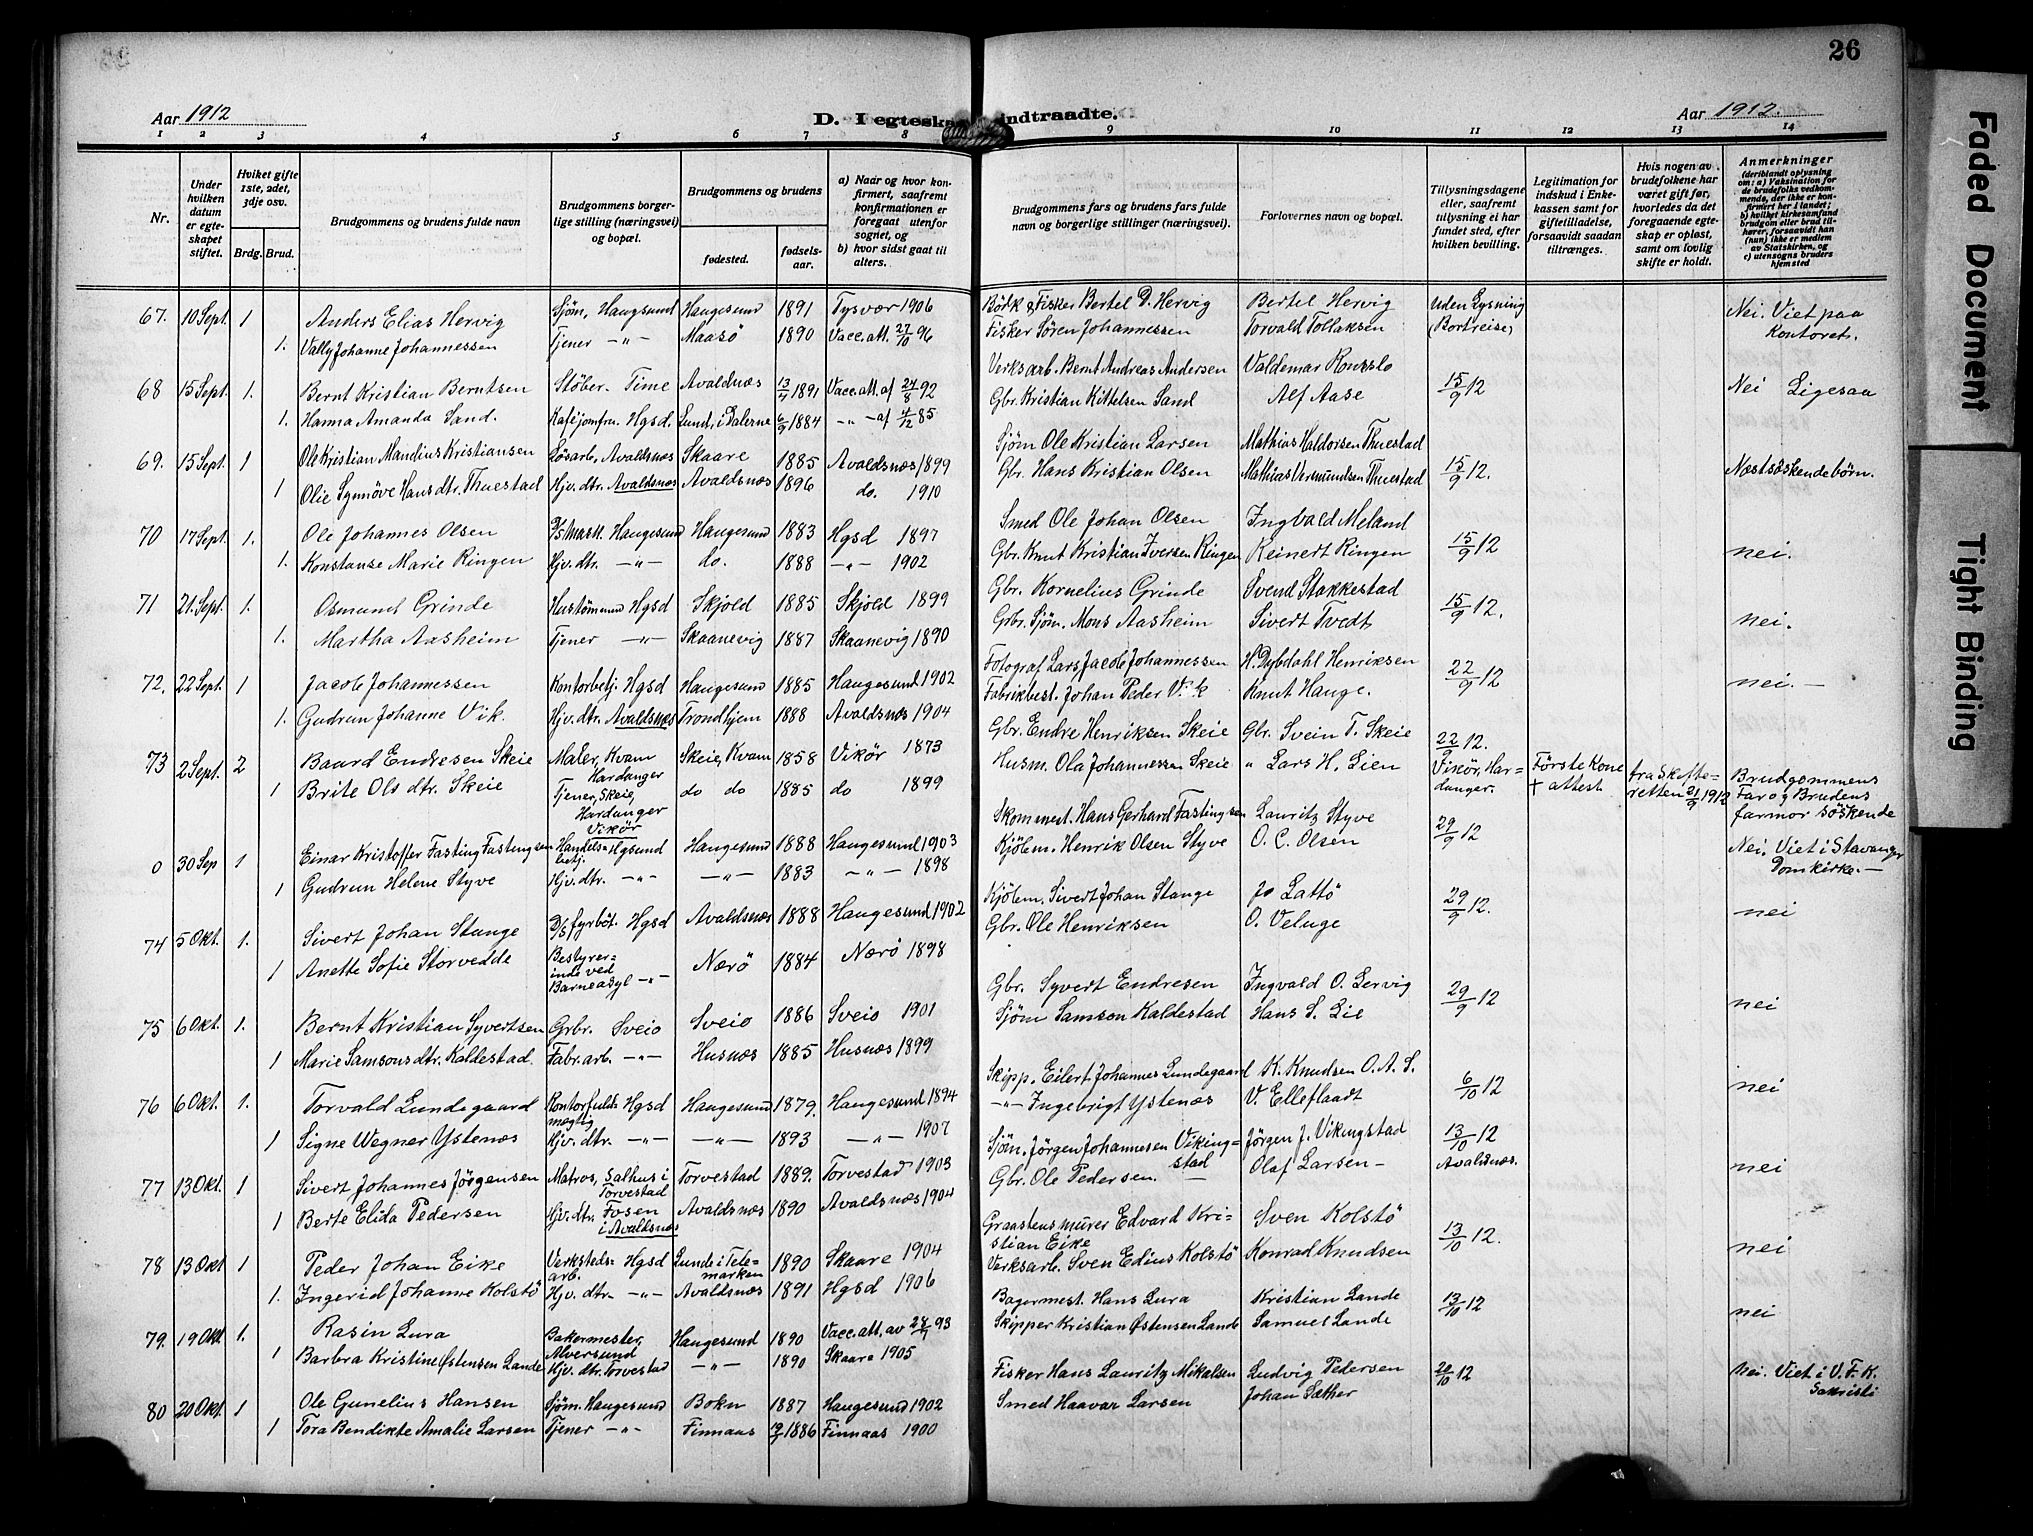 26
Aar 1912
D. I egteska indtraadte.
Aar 1912.
1 2 3 4 5 6 7 8 9 10 11 12 13 14
Nr.
Under hvilken datum er egteskapet stiftet.
Hviket gifte 1ste, 2det, 3dje osv.
Brdg. Brud.
Brudgommens og brudens fulde navn
Brudgommens borgerlige stilling (næringsvei) og bopæl.
Brudgommens og brudens
fødested.
fødselsaar.
a) Naar og hvor konfirmert, saafremt konfirmationen er foregaat utenfor sognet, og
b) hvor sidst gaat til alters.
Brudgommens fars og brudens fars fulde navn og borgerlige stillinger (næringsvei).
Forlovernes navn og bopæl.
Tillysningsdagene eller, saafremt tillysning ei har fundet sted, efter hvilken bevilling.
Legitimation for indskud i Enkekassen samt for giftetilladelse, forsaavidt saadan tiltrænges.
Hvis nogen av brudefolkene har været gift før, hvorledes da det foregaaende egteskap er opløst, samt om lovlig skifte er holdt.
Anmerkninger
(deriblandt oplysning om: a) Vaksination for de brudefolks vedkommende, der ikke er konfirmert her i landet; b) hvilket kirkesamfund brudgom eller brud tilhører, forsaavidt han (hun) ikke er medlem av Statskirken, og c) utensogns bruders hjemsted
67. 10 Sept. 1 Anders Elias Hervig Sjøm, Haugsund Haugesund 1891 Tysvær 1906 Bødk & Fisker Bertel D. Hervig Bertel Hervig Uden Lysning (Bortreise) Nei. Viet paa Kontoret.
1. Vally Johanne Johannessen Tjener -"- Maasö 1890 Vacc. att. 27/10 96 Fisker Sören Johannessen Torvald Tollaksen
68 15 Sept. 1. Bernt Kristian Berntsen Støber. Time Avaldnæs 13/7 1891 Vacc. att. af 24/8 92 Verksarb. Bernt Andreas Andersen Valdemar 15/9 12 Nei Ligesaa
1. Hanna Amanda Sand. Kaféjomfru. Hgsd. Lund, i Dalerne 6/9 1884 -"- af 4/12 85 Gbr. Kristian Kittelsen Sand Alf Aase
69. 15 Sept. 1 Ole Kristian Mandius Kristiansen Løsarb. Avaldsnæs Skaare 1885 Avaldsnæs 1899 Sjøm Ole Kristian Larsen Mathias Haldorsen Thuestad 15/9 12. Næstsøskendebørn.
1 Olie Synnöve Hans dtr. Thuestad Hjv. dtr. Avaldsnæs Avaldsnæs 1896 do. 1910 Gbr. Hans Kristian Olsen Mathias Vermundsen Thuestad
70 17 Sept. 1. Ole Johannes Olsen D/S Mask. Haugesund Haugesund 1883 Hgsd 1897 Smed Ole Johan Olsen Ingvald Meland 15/9 12 nei.
1. Konstanse Marie Ringen Hjv. dtr. -"- do. 1888 -"- 1902 Gbr. Knut Kristian Iversen Ringen Reinert Ringen
71 21. Sept. 1. Osmund Grinde Hustömmand Hgsd Skjold 1885 Skjold 1899 Gbr. Kornelius Grinde Svend Stakkestad 15/9 12. nei.
1. Martha Aasheim Tjener -"- Skaanevig 1887 Skaanevig 1890 Gbr. Sjøm. Mons Aasheim Sivert Tvedt
72. 22 Sept. 1 Jacob Johannessen Kontorbetj. Hgsd Haugesund 1885 Haugesund 1902 Fotograf Lars Jacob Johannessen H. Dybdahl Henriksen 22/9 12 nei. -
1. Gudrun Johanne Vik. Hjv. dtr. Avaldsnæs Trondhjem 1888 Avaldsnæs 1904 Fabrikbest. Johan Peder Vik Knut Hauge.
73 2 Sept. 2 Baard Endresen Skeie Maler, Kvam Hardanger Skeie, Kvam 1858 Vikør 1873 Gbr. Endre Henriksen Skeie Gbr. Svein T. Skeie 22/9 12. Vikør, Hardanger. Første Kone + attest fra Skifteretten 21/9 1912 Brudgommens Far og Brudens farmor søskende
1 Brite Ols dtr. Skeie Tjener, Skeie, Hardanger Vikør do do 1885 do 1899 Husm. Ola Johannessen Skeie " Lars H. Lien
0 30 Sep 1 Einar Kristoffer Fasting Fastingsen Handelsbetj. Hgsund Haugesund 1888 Haugesund 1903 Skommest. Hans Gerhard Fastingsen Lauritz Styve 29/9 12 Nei. Viet i Stavanger Domkirke. -
1 Gudrun Helene Styve Hjv. dtr. -"- -"- 1883 -"- 1898 Kjøbm. Henrik Olsen Styve O. C. Olsen
74 5 Okt. 1. Sivert Johan Stange D/S fyrböt. Hgsd Avaldsnæs 1888 Haugesund 1902 Kjøbm. Sivert Johan Stange Jo Lattö 29/9 12. nei
1 Anette Sofie Storvedde Bestyrerinde ved Barneasyl -"- Nærö 1884 Nærö 1898 Gbr. Ole Henriksen O. Veluge
75 6 Okt. 1. Bernt Kristian Syvertsen Grbr. Sveio Sveio 1886 Sveio 1901 Gbr. Syvert Endresen Ingvald O. Lervig 29/9 12 nei
1 Marie Samsons dtr. Kaldestad Fabr. arb. -"- Husnæs 1885 Husnæs 1899 Sjøm Samson Kaldestad Hans S. Lie
76 6 Okt. 1. Torvald Lundegaard Kontorfuldmægtig Hgsd Haugesund 1879. Haugesund 1894 Skipp. Eilert Johannes Lundegaard K. Knudsen O. A. S. 6/10 12 nei
1 Signe Wegner Ystenæs Hjv. dtr. -"- -"- 1893 -"- 1907 -"- Ingebrigt Ystenæs V. Elleflaadt
77 13 Okt. 1 Sivert Johannes Jörgensen Matros, Salhus i Torvestad Torvestad 1889. Torvestad 1903 Sjøm. Jörgen Johannesen Vikingstad Jörgen J. Vikingstad 13/10 12 Avaldsnæs. nei
1 Berte Elida Pedersen Hjv. dtr. Fosen i Avaldsnæs Avaldsnæs 1890 Avaldsnæs 1904 Gbr. Ole Pedersen. - Olaf Larsen -
78 13 Okt 1 Peder Johan Eike Verkstedsarb. Hgsd Lunde i Telemarken 1890 Skaare 1904 Graastensmurer Edvard Kristian Eike Sven Kolstö 13/10 12. nei
1. Ingerid Johanne Kolstö Hjv. dtr. -"- Avaldsnæs 1891 Hgsd 1906 Verksarb. Sven Edius Kolstö Konrad Knudsen
79. 19 Okt 1. Rasin Lura Bakermester, Alversund Haugesund 1890 Vacc. att. av 24/7 93 Bagermest. Hans Lura Kristian Lande 13/10 12 nei
1 Barbra Kristine Østensen Lande Hjv. dtr. Torvestad -"- 1890 Skaare 1905 Skipper Kristian Østensen Lande Samuel Lande
80 20 Okt. 1 Ole Gunelius Hansen Sjøm. Haugesund Bokn 1887 Haugesund 1902 Fisker Hans Lauritz Mikalsen Ludvig Pedersen 20/10 12 nei. Viet i V. F. K. Sakristi
1 Tora Bendikte Amalie Larsen Tjener -"- Finnaas 1886 Finnaas 1900 Smed Haavar Larsen Johan Sæther
Faded Document
Tight Binding